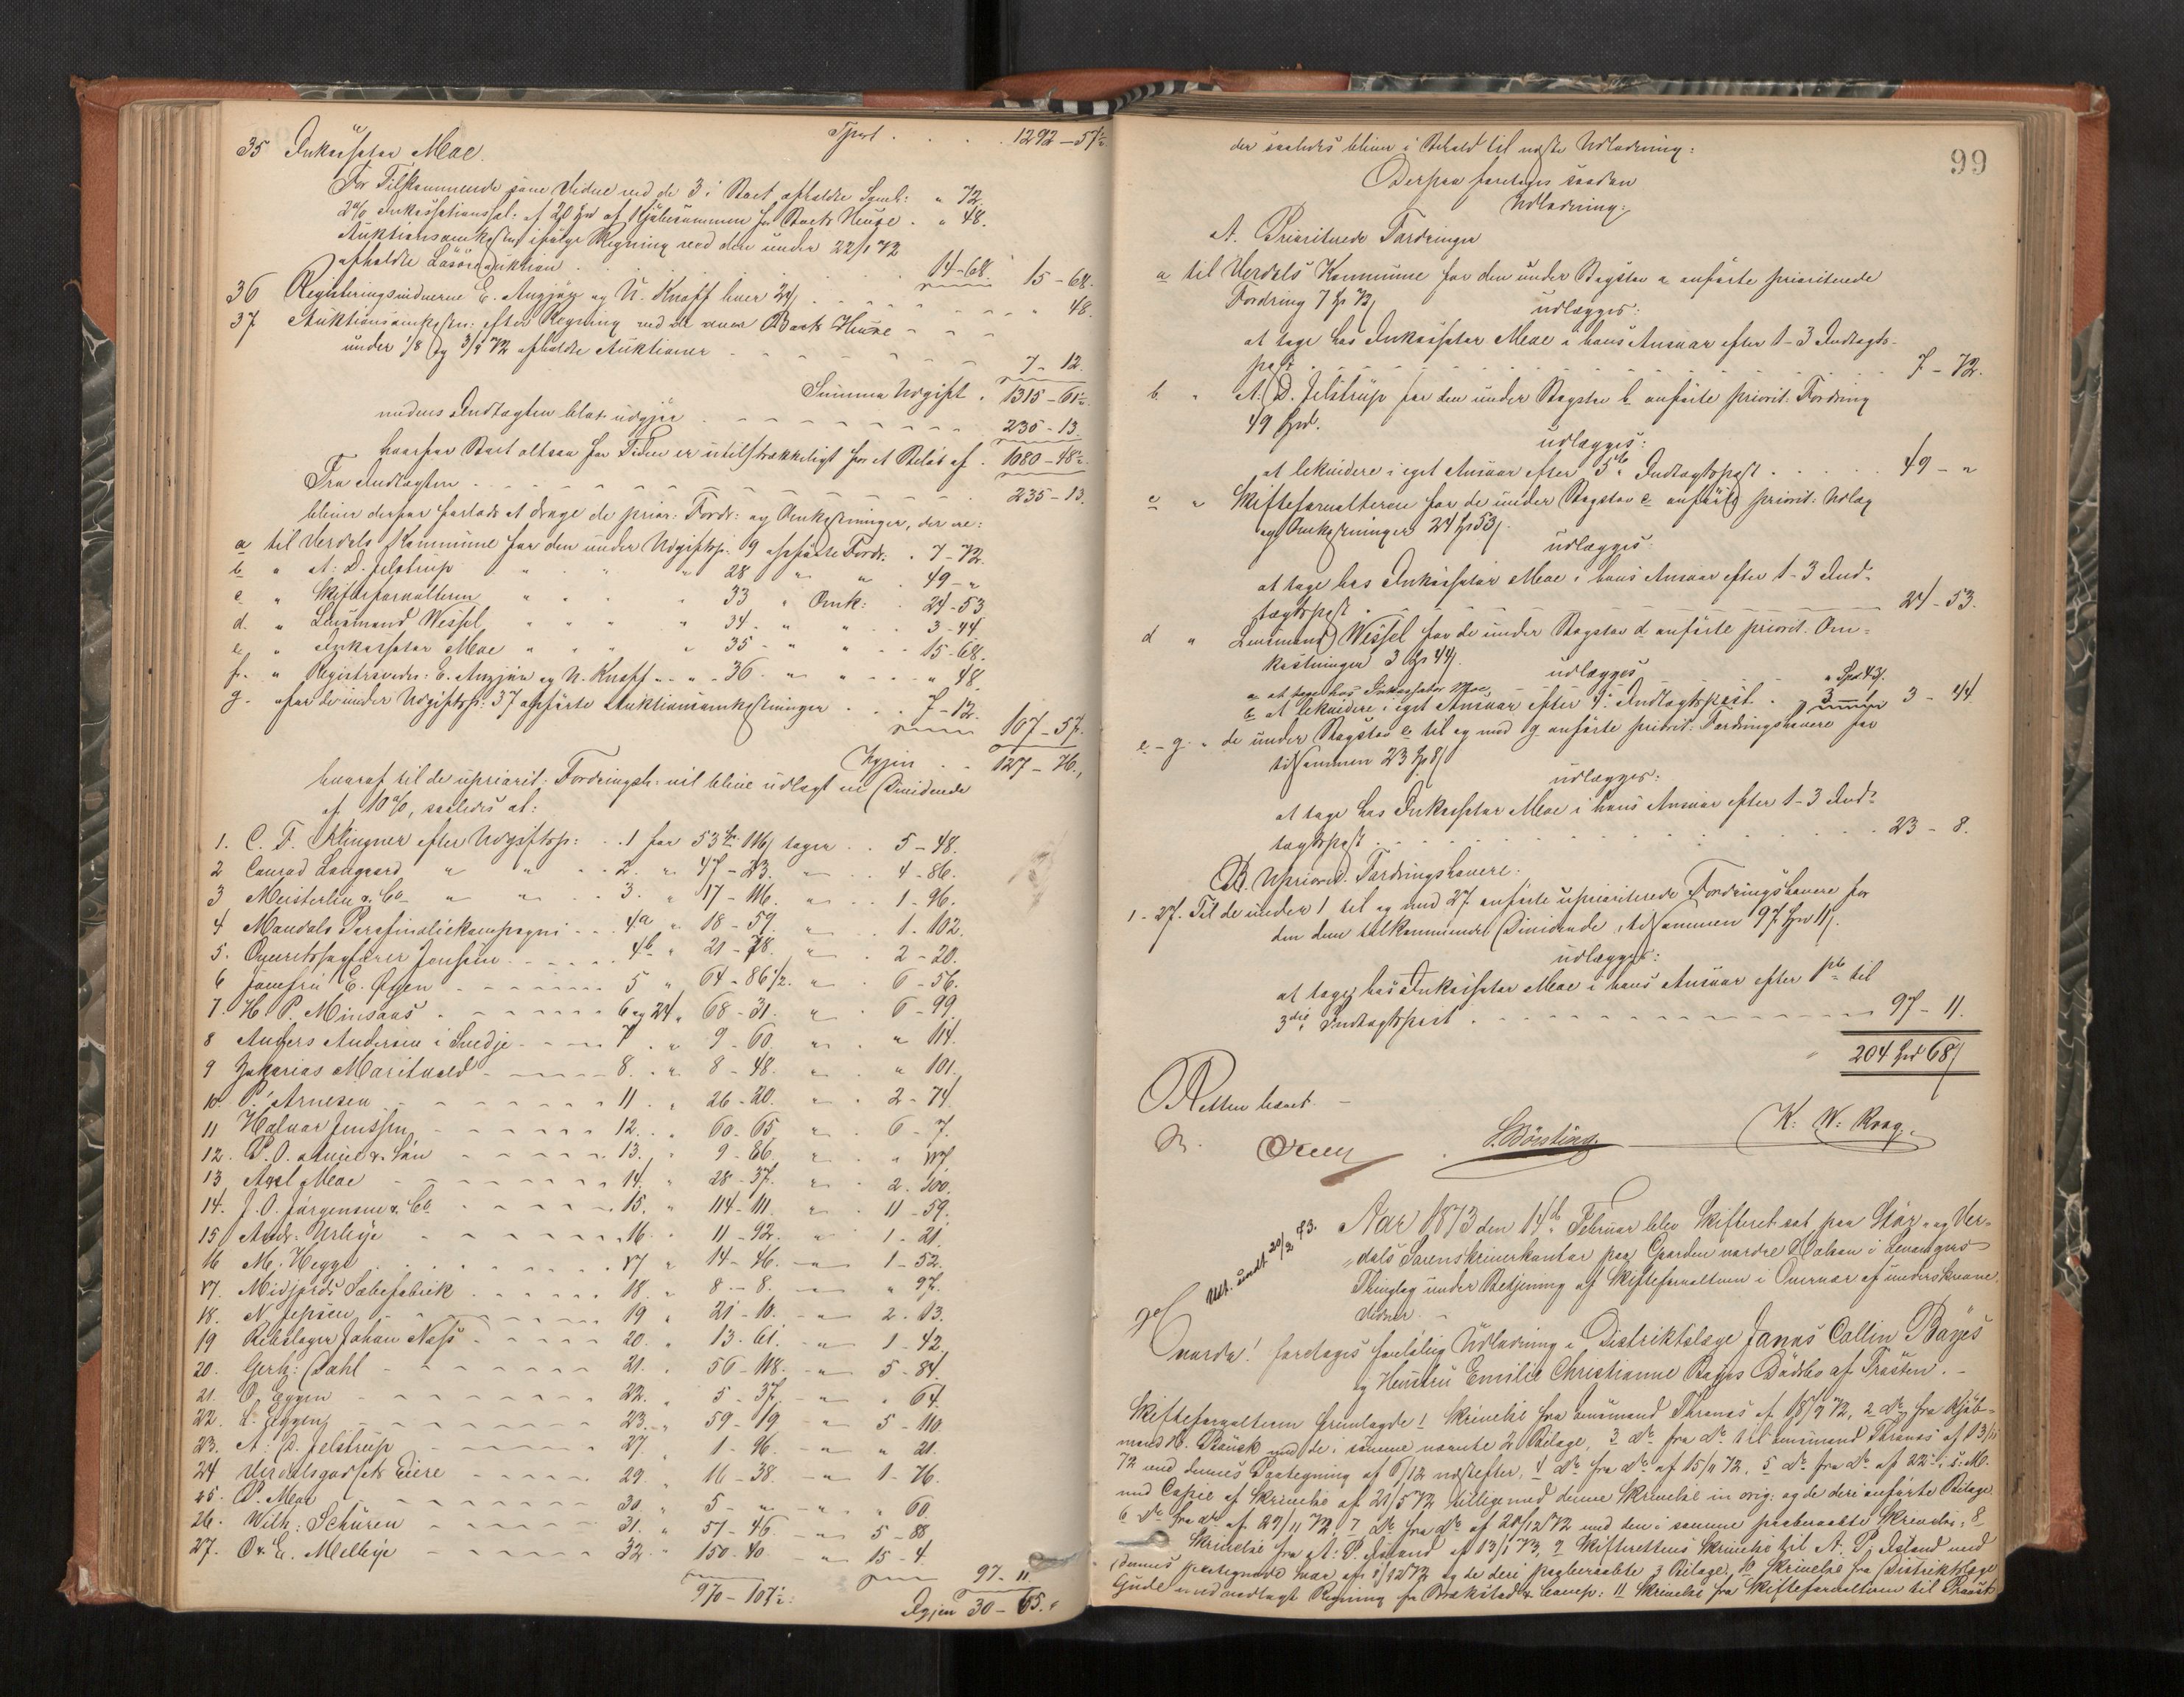 Tpart . . . 1292 – 57½
35 Inkassator Moe.
For Tilkommende som Vidne ved de 3 i Boet afholdte Saml: " 72.
2% Inkassationssal: af 20 Spd af Kjøbesummen for Boets Huse . " 48.
Auktionsomkostn: ifølge Regning ved den under 22/1 72
afholdte Løsøreauktion . . . 14 – 68. 15 – 68.
36 Registreringsvidnerne E. Anzjøn og N. Knoff hver 24 . . . " 48.
37 Auktionsomkostn: efter Regning ved de over Boets Huse
under 1/8 og 3/9 72 afholdte Auktioner . . . 7 – 12.
Summa Udgift . 1315 – 61½.
medens Indtægten blot udgjør . . . 235 – 13.
hvorfor Boet altsaa for Tiden er utilstrækkeligt for et Beløb af . 1080 – 48½.
Fra Indtægten . . . 235 – 13.
bliver derfor forlods at drage de prior: Fordr: og Omkostninger, der ere:
a til Verdals Kommune for den under Udgiftsp: 9 opførte Fordr. . 7 – 72.
b " A. D. Jelstrup " " " 28 " " . 49 – "
c " Skifteforvalteren " " " 33 " Omk: . 24 – 53
d. " Lensmand Wessel " " " 34 " " . 3 – 44
e. " Inkassator Moe " " " 35 " " . 15 – 68.
f. " Registrsvidn: E. Anzjøn og N. Knoff " " 36 " " . " 48.
g. " for de under Udgiftsp: 37 opførte Auktionsomkostninger . . 7 – 12. 107 – 57.
Igjen . . 127 – 76.
hvoraf til de upriorit: Fordringsh: vil blive udlagt en Dividende
af 10%, saaledes at:
1. C. F. Klingner efter Udgiftsp: . . 1 for 53 – 116 tager . . 5 – 48.
2 Conrad Langaard " " . . 2. " 47 – 23. " . . 4 – 86.
3 Meisterlin & Co " " . . 3. " 17 – 116. " . . 1 – 96.
4 Mandals Parafinoliekompagni . . 4a " 18 – 59. " . . 1 – 102.
5. Overretssagfører Jenssen . . . 4b " 21 – 78. " . 2 – 20.
6 Jomfru E. Øyen . . . 5 " 64 – 86½. " . 6 – 56.
7. H. P. Minsaas . . . 6 og 24 " 68 – 31. " . 6 – 99.
8 Anders Andersen i Svedje . . . 7 . " 9 – 60. " . " 114.
9 Zakarias Maritvold . . . 8. " 8 – 48. " . " 101.
10. P. Arnesen . . . 11 . " 26 – 20. " . 2 – 74.
11 Halvar Jenssen . . . 12. " 60 – 65 " . 6 – 7.
12. P. O. Aune & Søn . . . 13. " 9 – 86 " . " 117
13 Axel Moe . . . 14. " 28 – 37. " . 2. 100.
14. J. O. Jørgensen & Co . . . 15. " 114 – 111. " . 11 – 59.
15 Andr: Urbye . . . 16. " 11 – 92. " . 1 – 21.
16 M. Hegge . . . 17 " 14 – 46. " . 1 – 52.
17. Midfjords Sæbefabrik . . . 18. " 8 – 8. " . " 97.
18. N. Jepsen . . . 19 " 21 – 10. " . 2 – 13.
19 Rebslager Johan Næss . . . 20. " 13 – 61. " . 1 – 42.
20. Gerh: Dahl . . . 21. " 56 – 118. " . 5 – 84.
21. O. Eggen . . . 22. " 5 – 37. " . " 64.
22. L. Eggen . . . 23. " 59 – 19 " . 5 – 110.
23. A. D. Jelstrup . . . 27. 1 – 96. " . " 21.
24 Verdalsgodsets Eiere . . . 29. " 16 – 38. " . 1 – 76.
25. P. Moe . . . 30. " 5 – " " . " 60.
26. Wilh: Schüren . . . 31. " 57 – 46. " . 5 – 88.
27. O. & E. Melbye . . . 32. " 150 – 40. " . 15 – 4. 97 – 11.
970 – 107½. Igjen 30 – 65.
99
der saaledes bliver i Behold til næste Udlodning:
Derpaa foretoges saadan
Udlodning:
A. Prioriterede Fordringer
a til Verdals Kommune for den under Bogstav a anførte prioriterede
Fordring 7 Sp 72
udlægges:
at tage hos Inkassator Moe i hans Ansvar efter 1 – 3 Indtægts-
post . . . 7 – 72.
b " A. D. Jelstrup for den under Bogstav b anførte priorit: Fordring
49 Spd.
udlægges:
at lekvidere i eget Ansvar efter 5te Indtægtspost . . . 49 – "
c " Skifteforvalteren for de under Bogstav c anførte priorit: Udlæg
og Omkostninger 24 Sp 53
udlægges
at tage hos Inkassator Moe i hans Ansvar efter 1 – 3 Ind-
tægtspost . . . 24 – 53.
d " Lensmand Wessel for de under Bogstav d anførte priorit. Om-
kostninger 3 Sp 44
udlægges
a at tage hos Inkassator Moe . . . " Spd 43
b at lekvidere i eget Ansvar efter 4. Indtægtspost . " 3 – 1 3 – 44
e – g. " de under Bogstav e til og med g anførte priorit: Fordringshavere for
tilsammen 23 Sp 8
udlægges:
at tage hos Inkassator Moe i hans Ansvar efter 1 – 3 Ind-
tægtspost . . . 23 – 8.
B. Upriorit. Fordringshavere:
1 – 27. Til de under 1 til og med 27 anførte uprioriterede Fordringshavere for
den dem tilkommende Dividende, tilsammen 97 Spd 11
udlægges:
at tage hos Inkassator Moe i hans Ansvar efter 1ste til
3die Indtægtspost . . . 97 – 11.
204 Spd 68
Retten hævet. –
S. Børsting K. W. Kvag.
Udt. sendt 20/2 73.
Aar 1873 den 14de Februar blev Skifteret sat paa Stør- og Ver-
dals Sorenskriverkontor paa Gaarden nordre Halsan i Levangers
Thinglag under Betjening af Skifteforvalteren i Overvær af underskrevne
Vidner. –
Hvorda! foretoges foreløbig Udlodning i Distriktslæge Jannes Collin Bayes
og Hustru Emilie Christianne Bayes Dødsbo af Trøsten. –
Skifteforvalteren fremlagde 1 Skrivelse fra Lensmand Thranes af 18/9 72, 2 do fra Kjøb-
mand H. Bausk med de i samme nævnte 2 Bilage, 3 do fra do til Lensmand Thranes af 13/11
72 med dennes Paategning af 6/12 næstefter, 4 do fra do af 15/11 72, 5 do fra do af 22 i s: M.
med Copie af Skrivelse af 21/5 72 tilligemed denne Skrivelse in orig: og de deri anførte Bilage
6 do fra do af 27/11 72, 7 do fra do af 20/12 72 med den i samme paaberaabte Skrivelse, 8
Skrivelse fra A: P. Øsland af 13/1 73, 9 Skifterettens Skrivelse til A. P. Øsland med
dennes paategnede Svar af 3/12 72 og de deri paaberaabte 3 Bilage, 10 Skrivelse fra Distriktslæge
Gude med vedlagt Regning fra Brækstad & Comp: 11 Skrivelse fra Skifteforvalteren til Provst